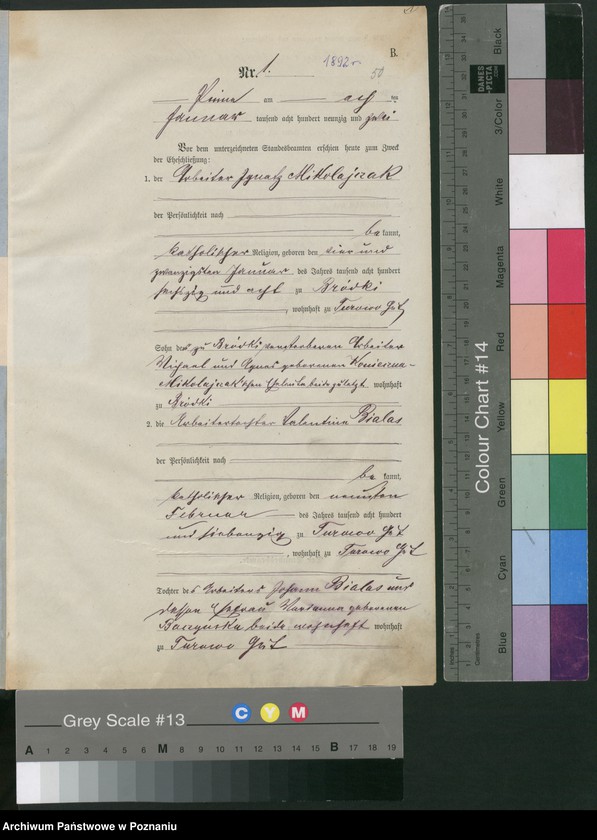 B.
Nr. 1.
1892r
50
Pinne am acht ten
Januar tausend acht hundert neunzig und zwei
Vor dem unterzeichneten Standesbeamten erschien heute zum Zweck
der Eheschließung:
1. der Arbeiter Ignatz Mikolajczak
der Persönlichkeit nach
be kannt,
katholischer Religion, geboren den vier und
zwanzigsten Januar des Jahres tausend acht hundert
sechszig und acht zu Brodki
, wohnhaft zu Turowo Gut
Sohn der zu Brodki verstorbenen Arbeiter
Michael und Agnes geborenen
Mikolajczak'schen Eheleute beide zuletzt wohnhaft
zu Brodki
2. die Arbeitertochter Valentine Bialas
der Persönlichkeit nach
be kannt,
katholischer Religion, geboren den neunten
Februar des Jahres tausend acht hundert
und siebenzig zu Turowo Gut
, wohnhaft zu Turowo Gut
Tochter des Arbeiters Johann Bialas und
dessen Ehefrau Marianna geborenen
beide wohnhaft wohnhaft
zu Turowo Gut
DANES
-PICTA
.COM
Colour Chart #14
Black
3/Color
White
Magenta
Red
Yellow
Green
Cyan
Blue
Centimetres
Inches
Grey Scale #13
C Y M
A 1 2 3 4 5 6 M 8 9 10 11 12 13 14 15 B 17 18 19
Archiwum Państwowe w Poznaniu